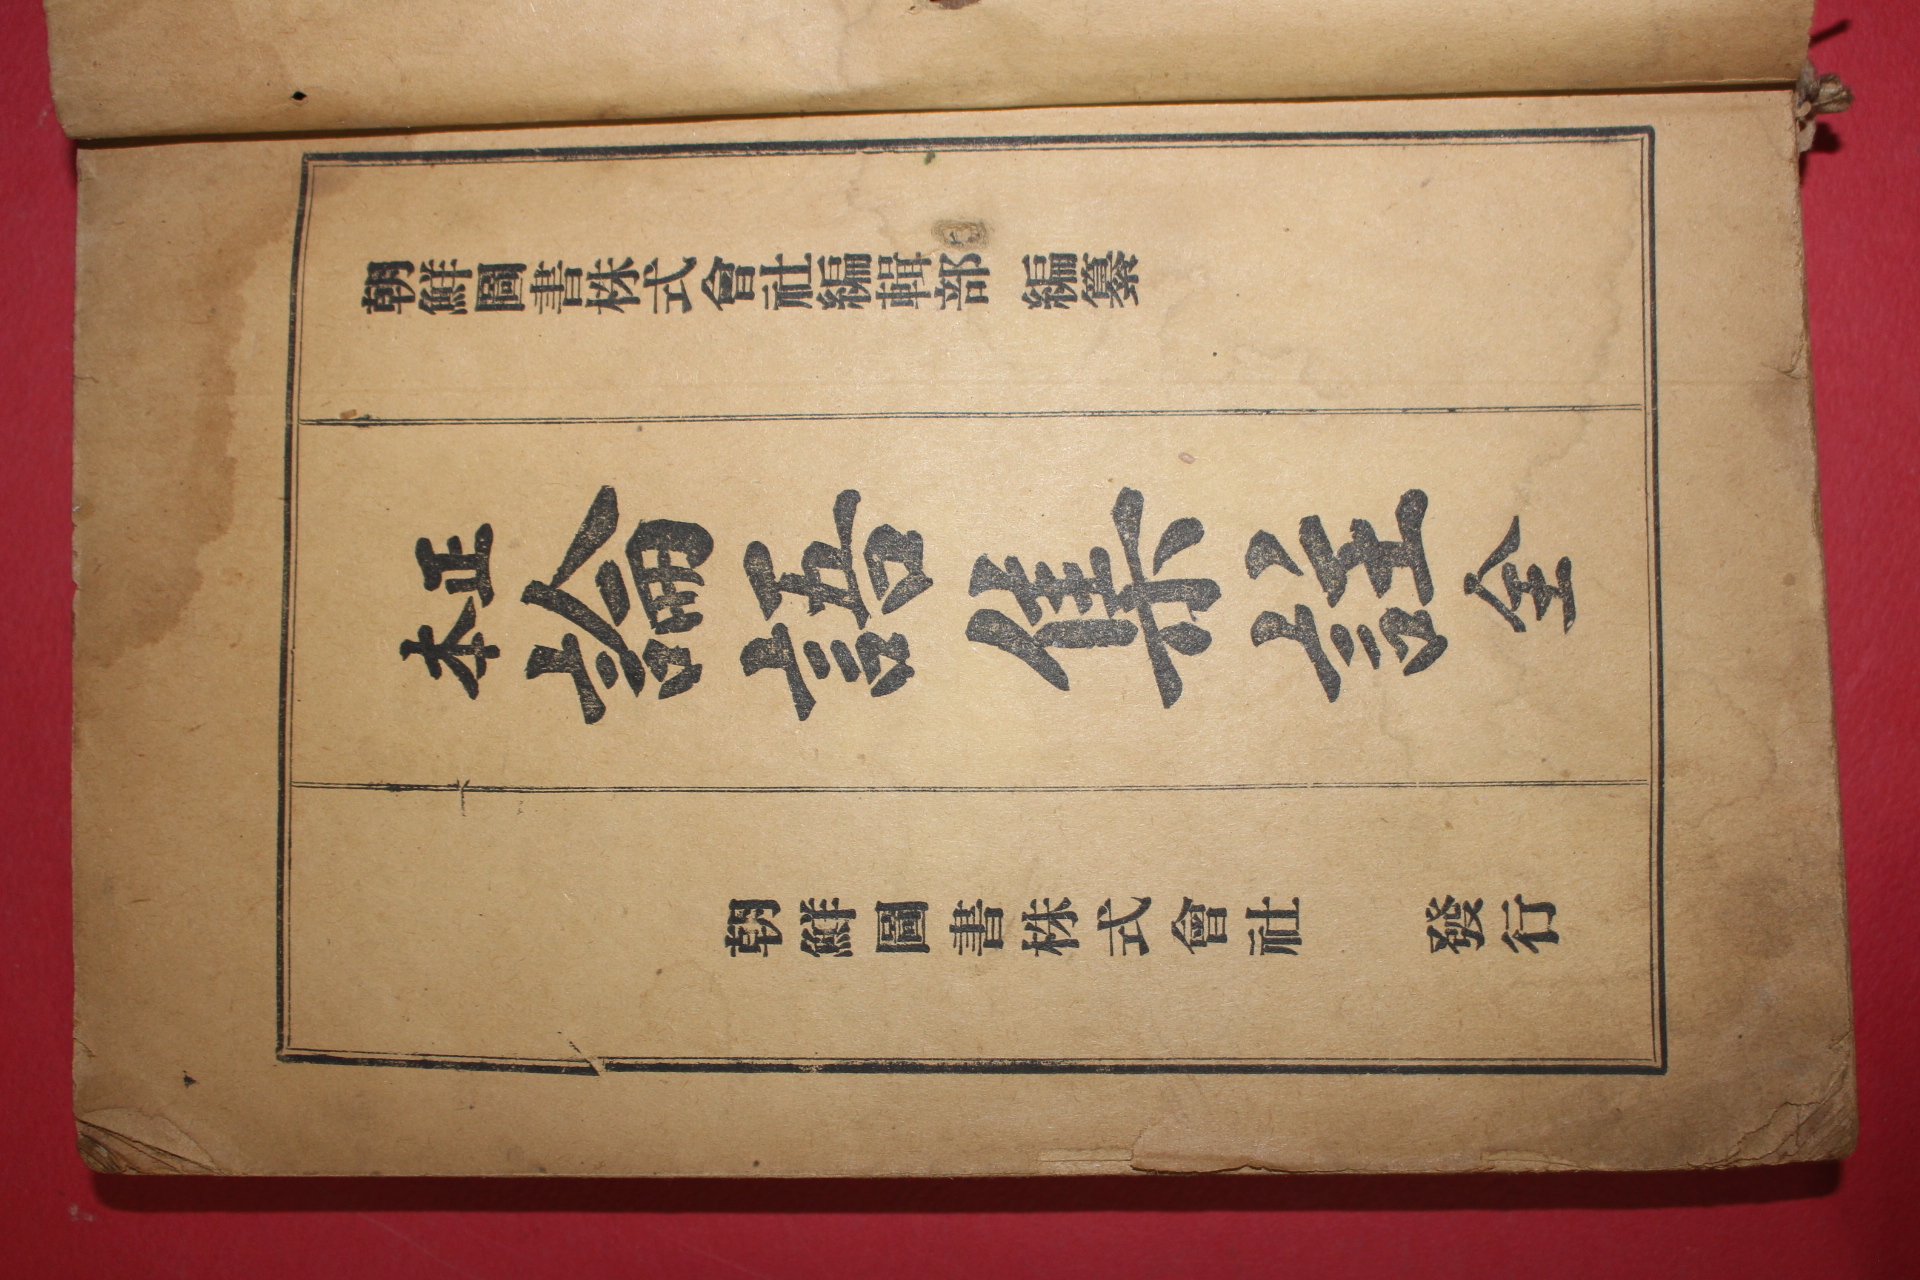 朝鮮圖書株式會社編輯部 編纂
正本 論語集註 全
朝鮮圖書株式會社 發行